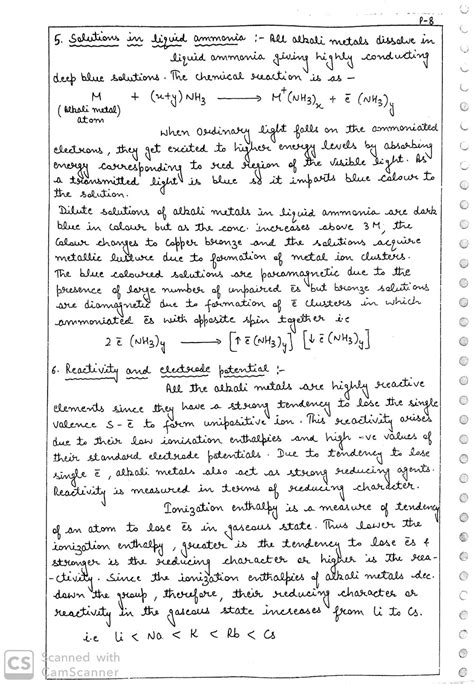 P-8
5. Solutions in liquid ammonia :- All alkali metals dissolve in
liquid ammonia giving highly conducting
deep blue solutions. The chemical reaction is as -
M + (x+y) NH3 ⟶ M⁺(NH3)x + ē (NH3)y
(Alkali metal)
atom
When ordinary light falls on the ammoniated
electrons, they get excited to higher energy levels by absorbing
energy corresponding to red region of the visible light. As
a transmitted light is blue so it imparts blue colour to
the solution.
Dilute solutions of alkali metals in liquid ammonia are dark
blue in colour but as the conc. increases above 3M, the
colour changes to copper bronze and the solutions acquire
metallic lusture due to formation of metal ion clusters.
The blue coloured solutions are paramagnetic due to the
presence of large number of unpaired ēs but bronze solutions
are diamagnetic due to formation of ē clusters in which
ammoniated ēs with opposite spin together i.e
2 ē (NH3)y ⟶ [↑ ē (NH3)y] [↓ ē (NH3)y]
6. Reactivity and electrode potential :-
All the alkali metals are highly reactive
elements since they have a strong tendency to lose the single
valence s-ē to form unipositive ion. This reactivity arises
due to their low ionisation enthalpies and high -ve values of
their standard electrode potentials. Due to tendency to lose
single ē, alkali metals also act as strong reducing agents.
Reactivity is measured in terms of reducing character.
Ionization enthalpy is a measure of tendency
of an atom to lose ēs in gaseous state. Thus lower the
ionization enthalpy, greater is the tendency to lose ēs &
stronger is the reducing character or higher is the rea-
-ctivity. Since the ionization enthalpies of alkali metals dec.
down the group, therefore, their reducing character or
reactivity in the gaseous state increases from Li to Cs.
i.e Li < Na < K < Rb < Cs
CS Scanned with
CamScanner